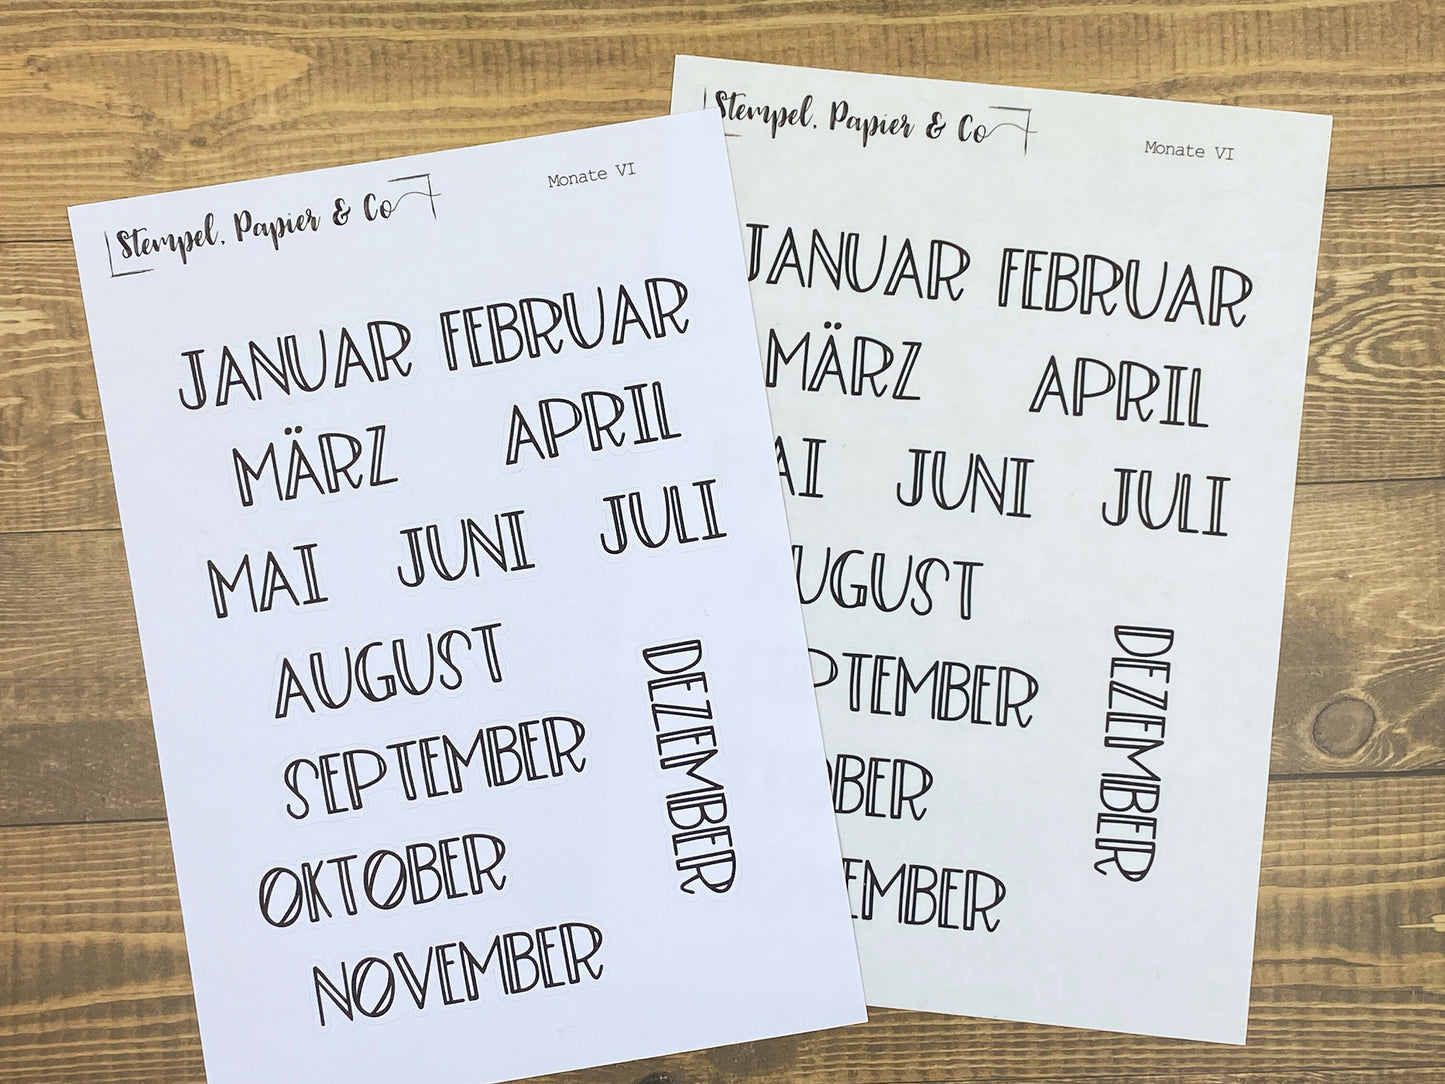 Stempel, Papier & Co
Monate VI
JANUAR FEBRUAR
MÄRZ APRIL
MAI JUNI JULI
AUGUST
SEPTEMBER
OKTOBER
NOVEMBER
DEZEMBER
Stempel, Papier & Co
Monate VI
JANUAR FEBRUAR
MÄRZ APRIL
AI JUNI JULI
UGUST
PTEMBER
OBER
EMBER
DEZEMBER